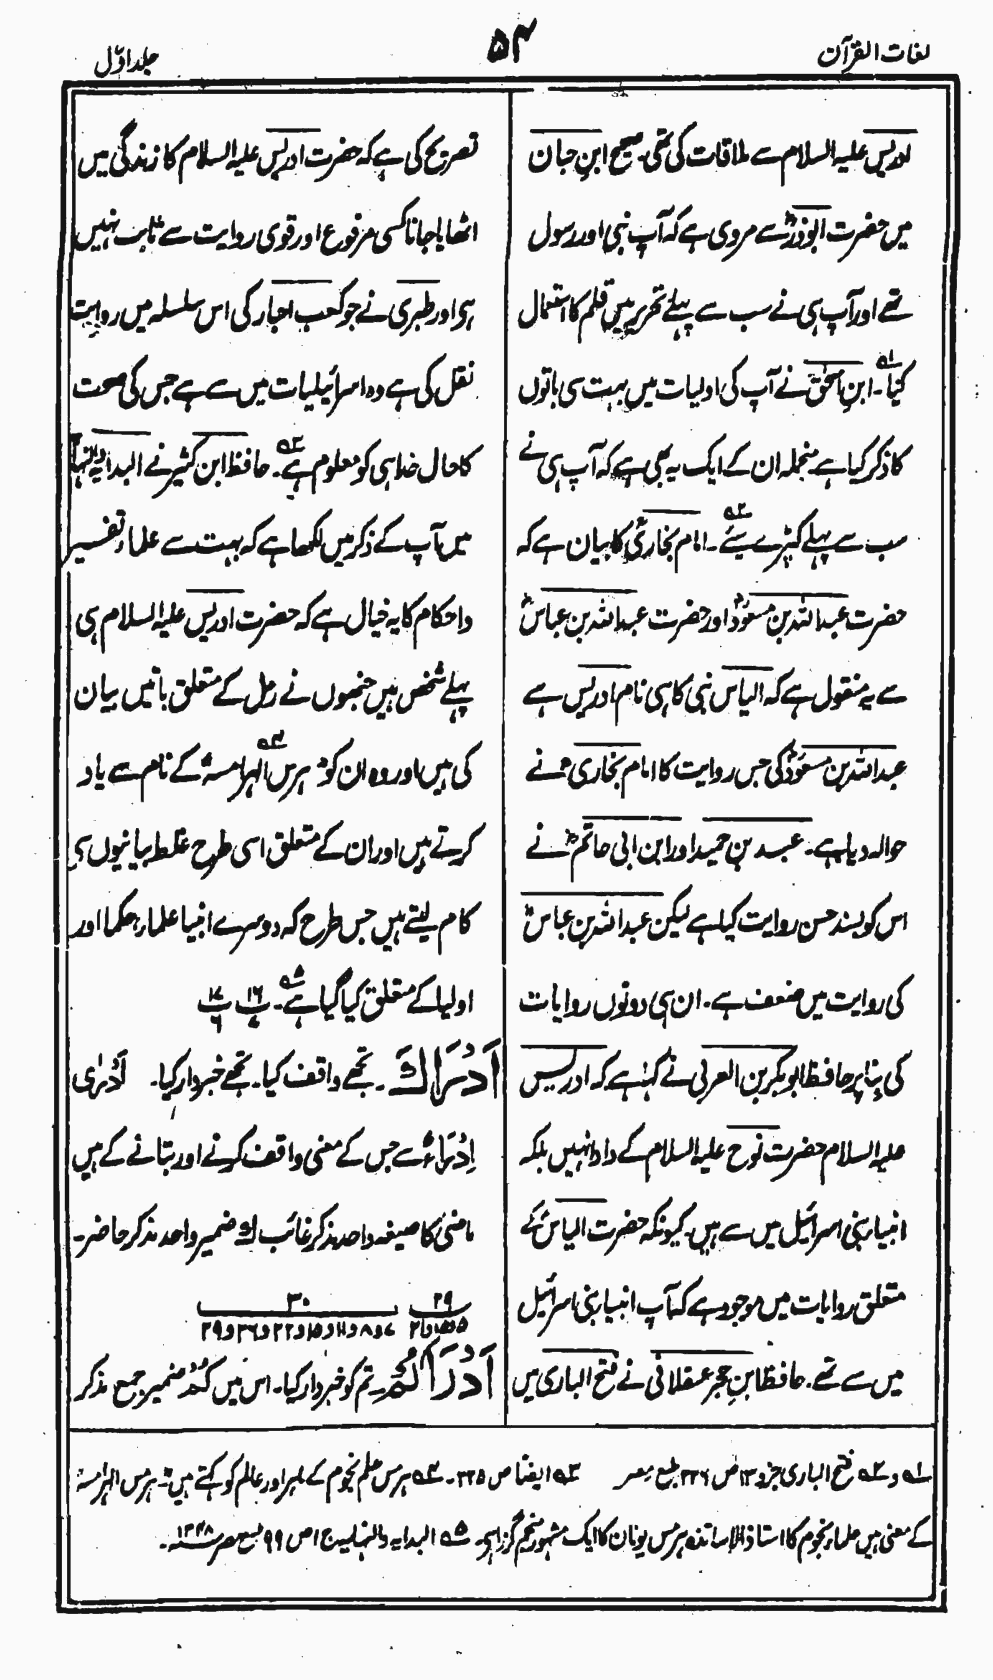 لغات القرآن
۵۴
جلد اوّل
ادریس علیہ السلام سے ملاقات کی تھی۔ صحیح ابن حبان
میں حضرت ابوذرؓ سے مروی ہے کہ آپ نبی اور رسول
تھے اور آپ ہی نے سب سے پہلے تحریر میں قلم کا استعمال
کیا۔ ابن اسحٰق نے آپ کی اولیات میں بہت سی باتوں
کا ذکر کیا ہے منجملہ ان کے ایک یہ بھی ہے کہ آپ ہی نے
سب سے پہلے کپڑے سیئے۔ امام بخاریؒ کا بیان ہے کہ
حضرت عبد اللہ بن مسعودؓ اور حضرت عبد اللہ بن عباسؓ
سے یہ منقول ہے کہ الیاس نبی کا ہی نام ادریس ہے
عبد اللہ بن مسعودؓ کی جس روایت کا امام بخاریؒ نے
حوالہ دیا ہے۔ عبد بن حمید اور ابن ابی حاتمؒ نے
اس کو بسند حسن روایت کیا ہے لیکن عبد اللہ بن عباسؓ
کی روایت میں ضعف ہے۔ ان ہی دونوں روایات
کی بنا پر حافظ ابوبکر بن العربی نے کہا ہے کہ ادریس
علیہ السلام حضرت نوح علیہ السلام کے دادا نہیں بلکہ
انبیاء بنی اسرائیل میں سے ہیں۔ کیونکہ حضرت الیاسؑ کے
متعلق روایات میں موجود ہے کہ آپ انبیا بنی اسرائیل
میں سے تھے۔ حافظ ابن حجر عسقلانی نے فتح الباری میں
تصریح کی ہے کہ حضرت ادریس علیہ السلام کا زندگی میں
اٹھایا جانا کسی مرفوع اور قوی روایت سے ثابت نہیں
ہی اور طبری نے جو کعب احبار کی اس سلسلہ میں روایت
نقل کی ہے وہ اسرائیلیات میں سے ہے جس کی صحت
کا حال خدا ہی کو معلوم ہے۔ حافظ ابن کثیر نے البدایہ والنہا
میں آپ کے ذکر میں لکھا ہے کہ بہت سے علماء تفسیر
واحکام کا یہ خیال ہے کہ حضرت ادریس علیہ السلام ہی
پہلے شخص ہیں جنھوں نے رمل کے متعلق باتیں بیان
کی ہیں اور وہ ان کو "ہرمس الہرامسہ" کے نام سے یاد
کرتے ہیں اور ان کے متعلق اسی طرح غلط بیانیوں سے
کام لیتے ہیں جس طرح کہ دوسرے انبیا علماء، حکما اور
اولیا کے متعلق کیا گیا ہے۔ پ۱۶ پ۱۷
اَدْرَاكَ۔ تجھے واقف کیا۔ تجھے خبردار کیا۔ اَدْرٰی
اِدْرَاءٌ سے جس کے معنی واقف کرنے اور بتانے کے ہیں
ماضی کا صیغہ واحد مذکر غائب ك ضمیر واحد مذکر حاضر۔
۲۹ ۳۰
اَدْرَاكُمْ۔ تم کو خبردار کیا۔ اس میں كُمْ ضمیر جمع مذکر
۱؎ و ۲؎ فتح الباری جزو ۱۳ ص ۲۲۶ طبع مصر ۳؎ ایضًا ص ۲۲۵۔ ۴؎ ہرمس علم نجوم کے ماہر اور عالم کو کہتے ہیں "ہرمس الہرامسہ"
کے معنی ہیں علماء نجوم کا استاذ الاساتذہ ہرمس یونان کا ایک مشہور منجم گزرا ہے۔ ۵؎ البدایہ والنہایہ ج ۱ ص ۹۹ طبع مصر ۱۳۴۸۔